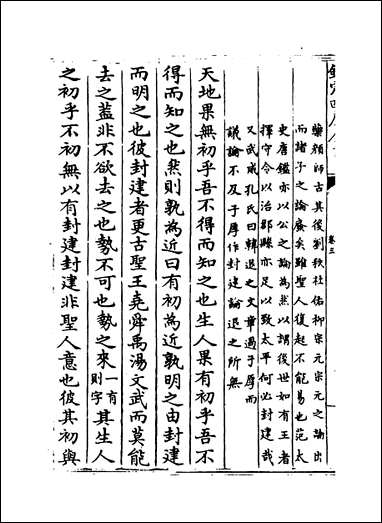 卷三
藥顔師古其後劉秩杜佑柳宗元宗元之論出
而諸子之論廢矣雖聖人復起不能易也范太
史唐鑑亦以公之論為然以謂後世如有王者
擇守令以治郡縣亦足以致太平何必封建哉
又武咸孔氏曰韓退之文章過子厚而
議論不及子厚作封建論退之所無
天地果無初乎吾不得而知之也生人果有初乎吾不
得而知之也然則孰為近曰有初為近孰明之由封建
而明之也彼封建者更古聖王堯舜禹湯文武而莫能
去之蓋非不欲去之也勢不可也勢之來一有則字其生人
之初乎不初無以有封建封建非聖人意也彼其初與